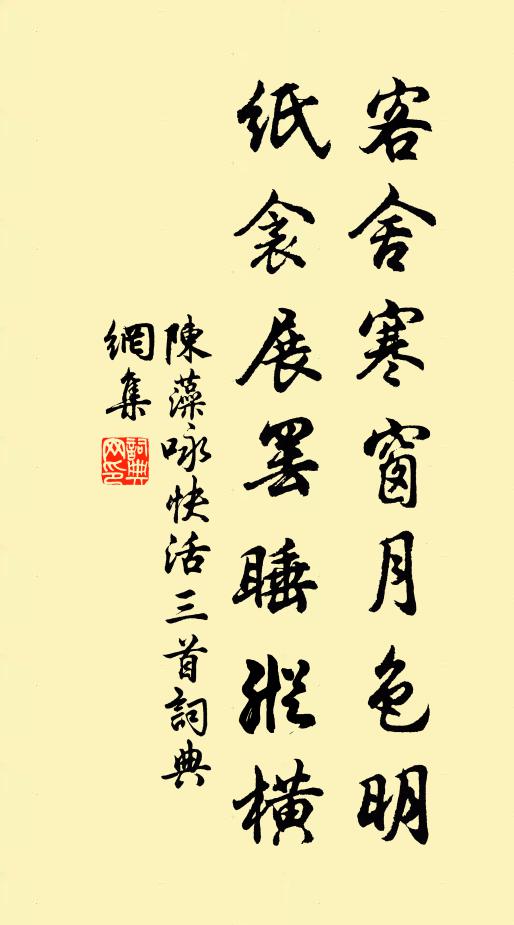 客舍寒窗月色明
紙衾展罷睡縱橫
陳藻咏快活三首詞典
網集
詞典網印